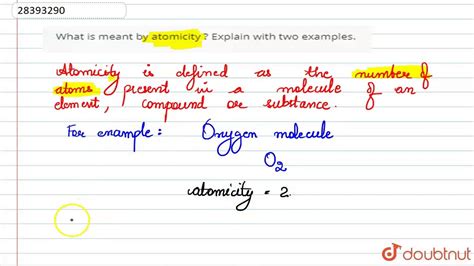 28393290
What is meant by atomicity ? Explain with two examples.
Atomicity is defined as the number of
atoms present in a molecule of an
element, compound or substance.
For example: Oxygen molecule
O2
atomicity = 2.
doubtnut